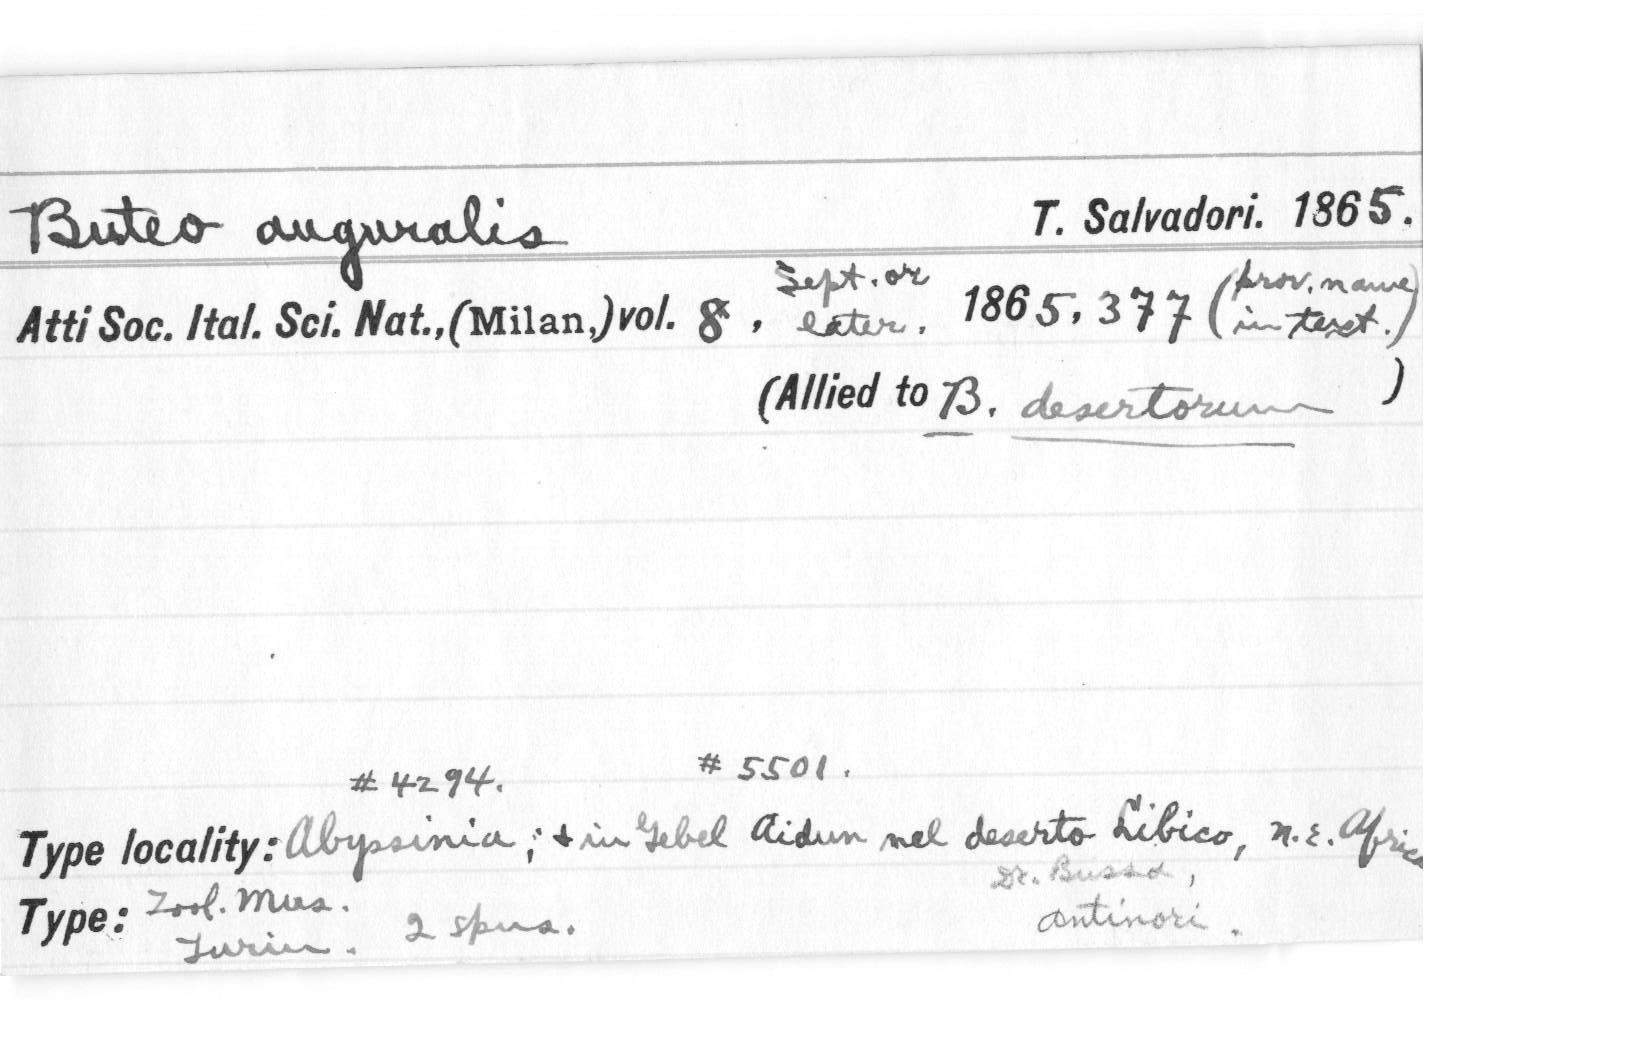 Buteo auguralis T. Salvadori. 1865.
Atti Soc. Ital. Sci. Nat., (Milan,) vol. 8, Sept. or later. 1865, 377 (prov. name in text.)
(Allied to B. desertorum )
#4294. #5501.
Type locality: Abyssinia; & in Gebel Aidun nel deserto Libico, N.E. Africa
Dr. Bussa,
Type: Zool. Mus. Turin. 2 spns. Antinori.